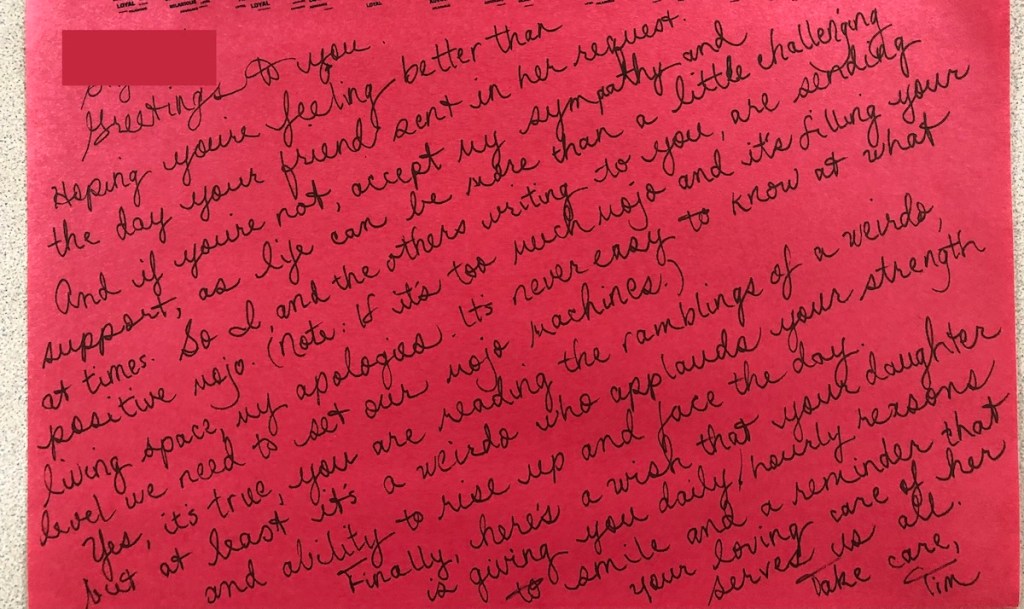 LOYAL
LOYAL
Greetings to you.
Hoping you're feeling better than
the day your friend sent in her request.
And if you're not, accept my sympathy and
support, as life can be more than a little challenging
at times. So I, and the others writing to you, are sending
positive mojo. (Note: If it's too much mojo and it's filling your
living space, my apologies. It's never easy to know at what
level we need to set our mojo machines.)
Yes, it's true, you are reading the ramblings of a weirdo,
but at least it's a weirdo who applauds your strength
and ability to rise up and face the day.
Finally, here's a wish that your daughter
is giving you daily/hourly reasons
to smile and a reminder that
your loving care of her
serves us all.
Take care,
Tim